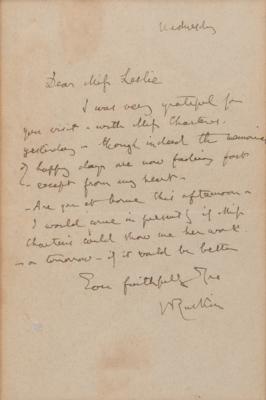 Wednesday
Dear Miss Leslie
I was very grateful for
your visit - with Miss Charteris
yesterday - though indeed the memories
of happy days are now fading fast
- except from my heart -
- Are you at home this afternoon -
I would come in presently if Miss
Charteris could show me her work.
- or tomorrow - if it would be better
Ever faithfully Yrs
JRuskin